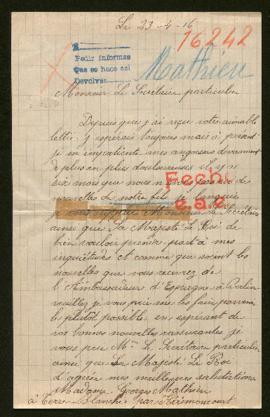 Le 23-4-16
16242
Pedir informes
Que se hace así
Devolver
Mathieu
Monsieur Le Secrétaire particulier
Depuis que j'ai reçu votre aimable
lettre j'espérais toujours mais à présent
je m'impatiente mes angoisses deviennent
de plus en plus douloureuses
six mois que nous
nouvelles de notre fils
Fecha
e.a.c
Monsieur le Secrétaire
ainsi que Sa Majesté Le Roi de
bien vouloir prendre part à mes
inquiétudes et comme que soient les
nouvelles que vous recevrez de
l'Ambassadeur d'Espagne à Berlin
veuillez je vous prie me les faire parvenir
le plutôt possible. en espérant de
vos bonnes nouvelles rassurantes je
vous prie Mr. Le Secrétaire particulier
ainsi que Sa Majesté Le Roi
d'agréer mes meilleures salutations
Madame Georges Mathieu
à Terre Blanche par Hérimoncourt